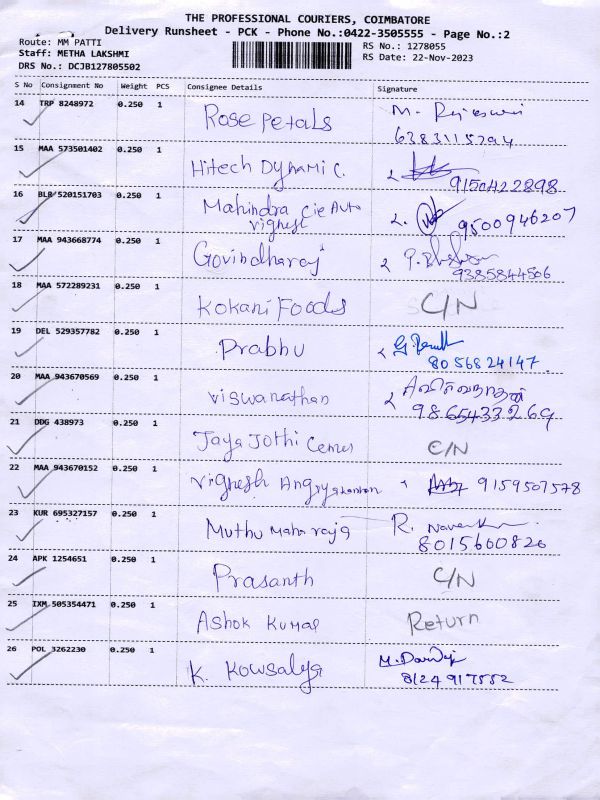 THE PROFESSIONAL COURIERS, COIMBATORE
Delivery Runsheet - PCK - Phone No.:0422-3505555 - Page No.:2
Route: MM PATTI
Staff: METHA LAKSHMI
DRS No.: DCJB127805502
RS No.: 1278055
RS Date: 22-Nov-2023
S No Consignment No Weight PCS Consignee Details Signature
14 TRP 8248972 0.250 1 Rose petals M. Rajeswari
6383115294
15 MAA 573501402 0.250 1 Hitech Dynamic.
9150422898
16 BLR 520151703 0.250 1 Mahindra Cie Auto
Vighesh 9500946207
17 MAA 943668774 0.250 1 Govindharaj
9385844506
18 MAA 572289231 0.250 1 Kokani Foods C/N
19 DEL 529357782 0.250 1 Prabhu
8056824147.
20 MAA 943670569 0.250 1 Viswanathan
9865433269
21 DDG 438973 0.250 1 Jaya Jothi C/N
22 MAA 943670152 0.250 1 Vighesh 9159507578
23 KUR 695327157 0.250 1 Muthu Maharaja R.
8015600826
24 APK 1254651 0.250 1 Prasanth C/N
25 IXM 505354471 0.250 1 Ashok Kumar Return
26 POL 3262230 0.250 1 K. Kowsalya
8124917552